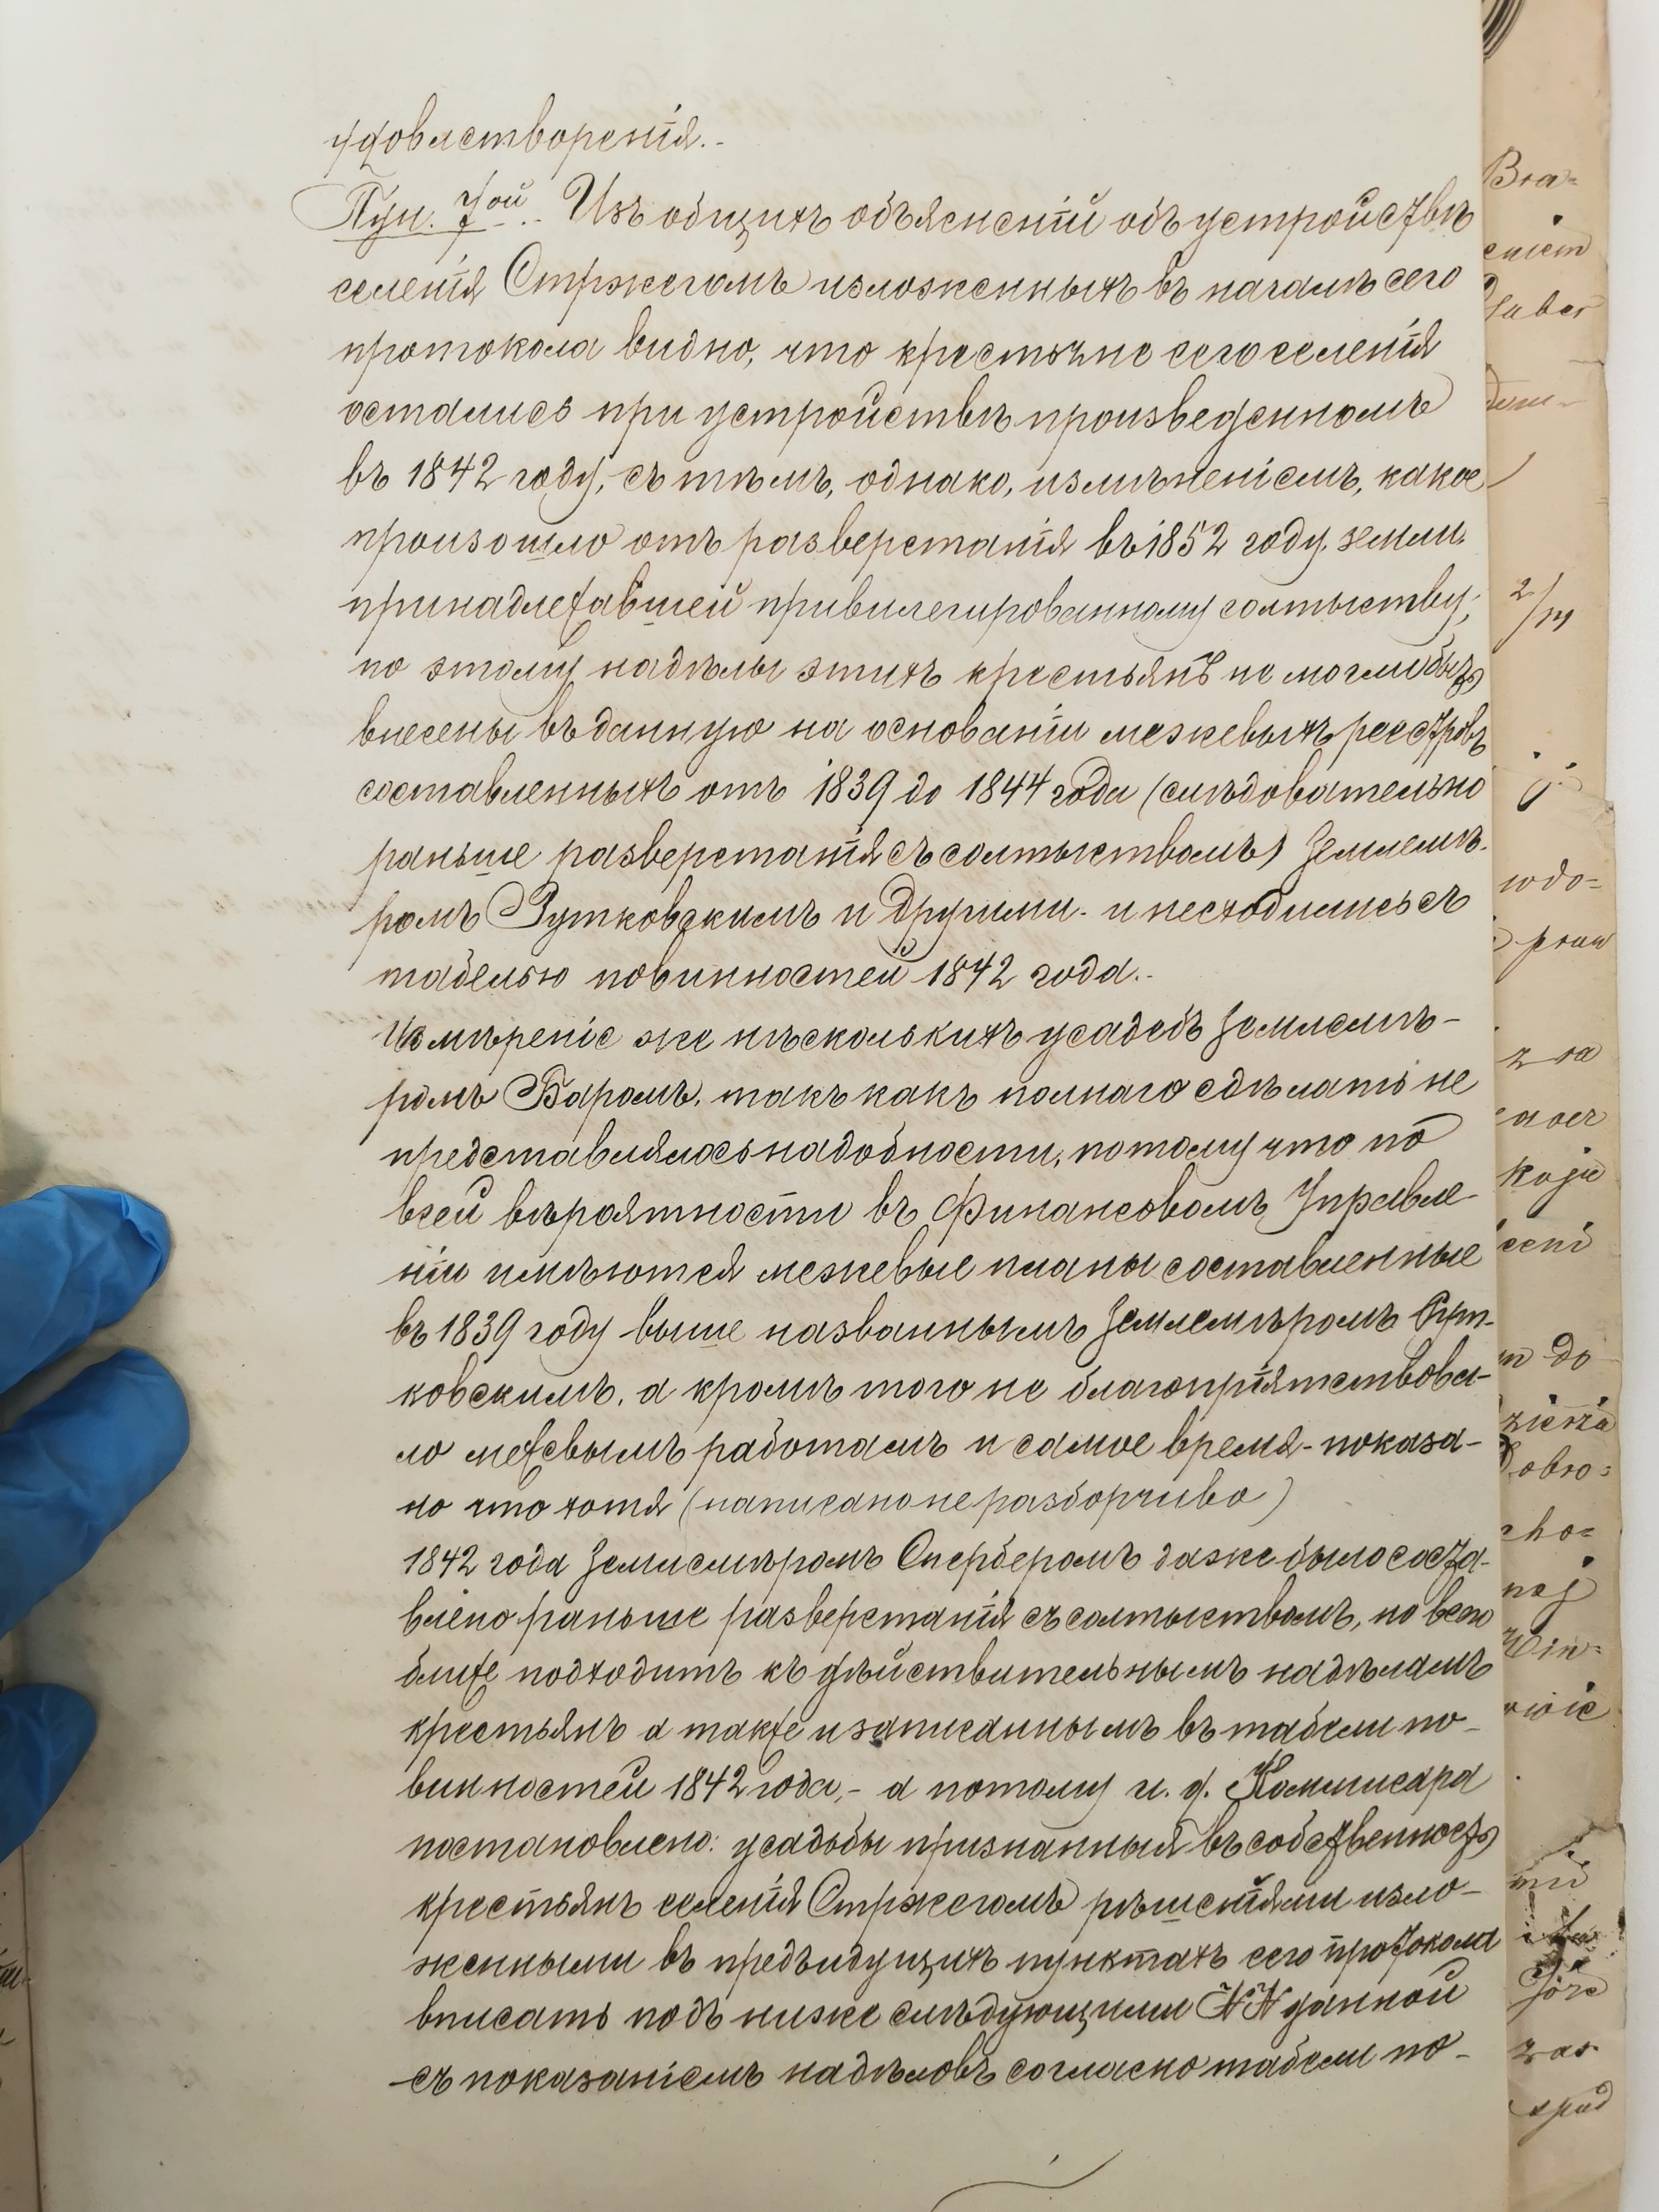 удовлетворенія.-
Пун. 7ой.- Изъ общихъ объясненій объ устройствѣ
селенія Стржегомъ изложенныхъ въ началѣ сего
протокола видно, что крестьяне сего селенія
остались при устройствѣ произведенномъ
въ 1842 году, съ тѣмъ, однако, измѣненіемъ, какое
произошло отъ разверстанія въ 1852 году земли
принадлежавшей привилегированному солтыству;
по этому надѣлы этихъ крестьянъ не могли быть
внесены въ данную на основаніи межевыхъ реестровъ
составленныхъ отъ 1839 до 1844 года (слѣдовательно
раньше разверстанія съ солтыствомъ) Землемѣ-
ромъ Рутковскимъ и другими и несходились съ
табелью повинностей 1842 года.-
Измѣреніе же нѣсколькихъ усадебъ Землемѣ-
ромъ Баромъ, такъ какъ полнаго сдѣлать не
представлялось надобности, потому что по
всей вѣроятности въ Финансовомъ Управле-
ніи имѣются межевые планы составленные
въ 1839 году выше названнымъ Землемѣромъ Рут-
ковскимъ, а кромѣ того не благопріятствова-
ло межевымъ работамъ и самое время - показа-
но что хотя (написано не разборчиво)
1842 года Землемѣромъ Сперберомъ даже было соста-
влено раньше разверстанія съ солтыствомъ, но всего
ближе подходитъ къ дѣйствительнымъ надѣламъ
крестьянъ а также и записаннымъ въ табели по-
винностей 1842 года,- а потому и. д. Коммисара
постановлено: усадьбы признанныя въ собственность
крестьянъ селенія Стржегомъ рѣшеніями изло-
женными въ предъидущихъ пунктахъ сего протокола
вписать подъ ниже слѣдующими NN данной
съ показаніемъ надѣловъ согласно табели по-